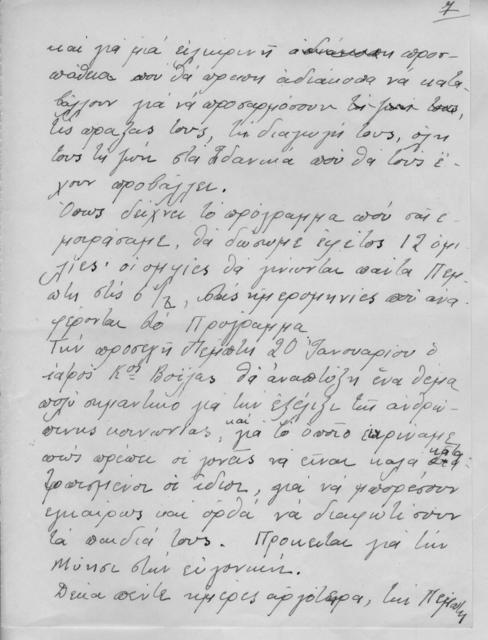 7
και για μιά ειλικρινή προσ-
πάθεια που θά πρεπη αδιακοπα νά κατα-
βάλλουν γιά νά προσαρμόσουν
τίς πράξεις τους, τη διαγωγή τους, ολη
τους τη ζωή στα Ιδανικά πού θά τους έ-
χουν προβάλλει.
Όπως δείχνει τό πρόγραμμα πού σας ε-
μοιράσαμε, θα δώσωμε εφέτος 12 ομι-
λίες· οι ομιλίες θα γίνονται πάντα Πεμ-
πτη στίς 6 ½, στις ημερομηνίες πού ανα-
φέρονται στό Πρόγραμμα
Την προσεχή Πέμπτη 20 Ιανουαρίου ο
ιατρός Κος Βοΐλας θά αναπτύξη ένα θέμα
πολύ σημαντικο για την εξέλιξι της ανθρω-
πινης κοινωνίας, και για το οποίο εκρίναμε
πώς πρεπει οι γονείς να είναι καλα κατα-
τοπισμένοι οι ίδιοι, γιά να μπορέσουν
εγκαίρως και ορθά να διαφωτίσουν
τα παιδιά τους. Προκειται γιά την
μύησι στην ευγονική.
Δεκα πεντε ημερες αργότερα, την Πεμπτη